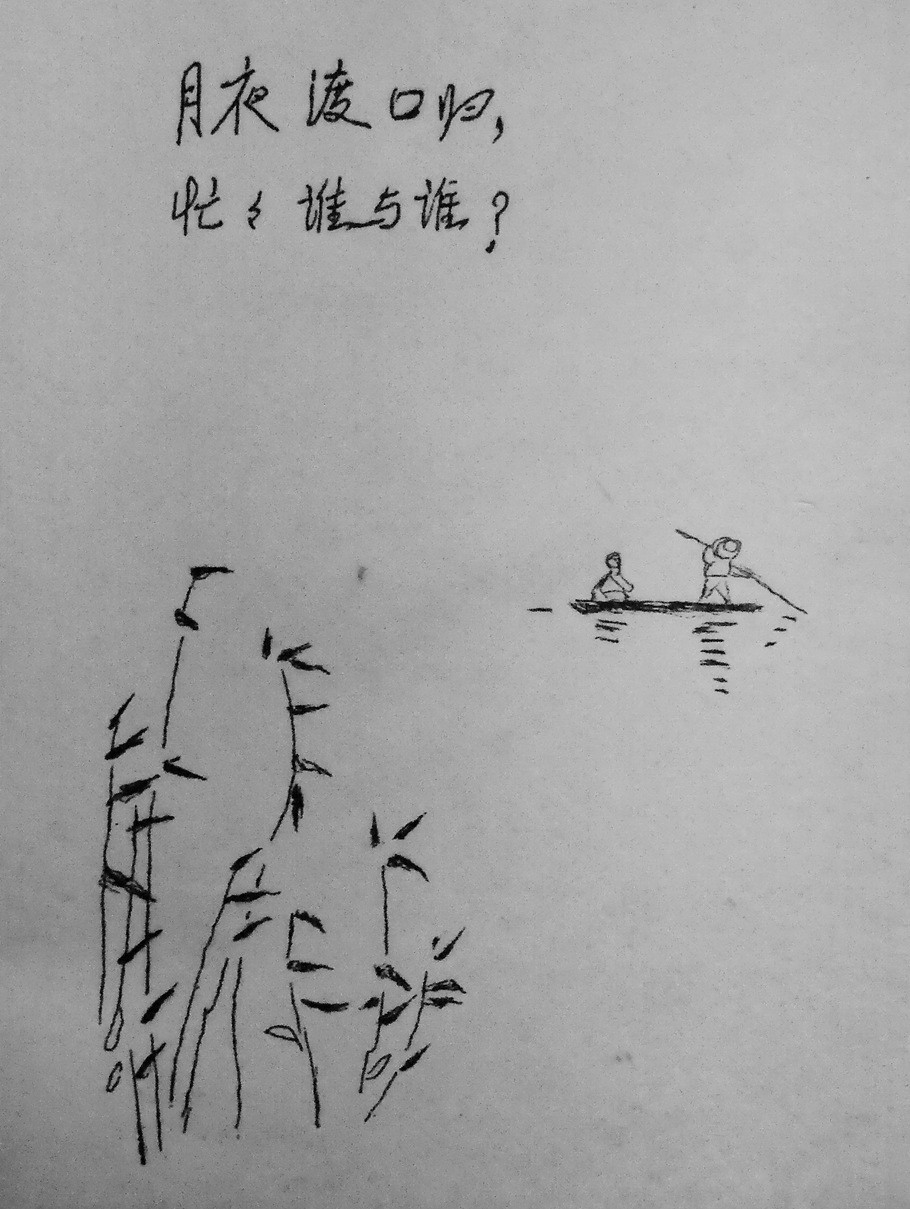 月夜渡口归,
忙々谁与谁?